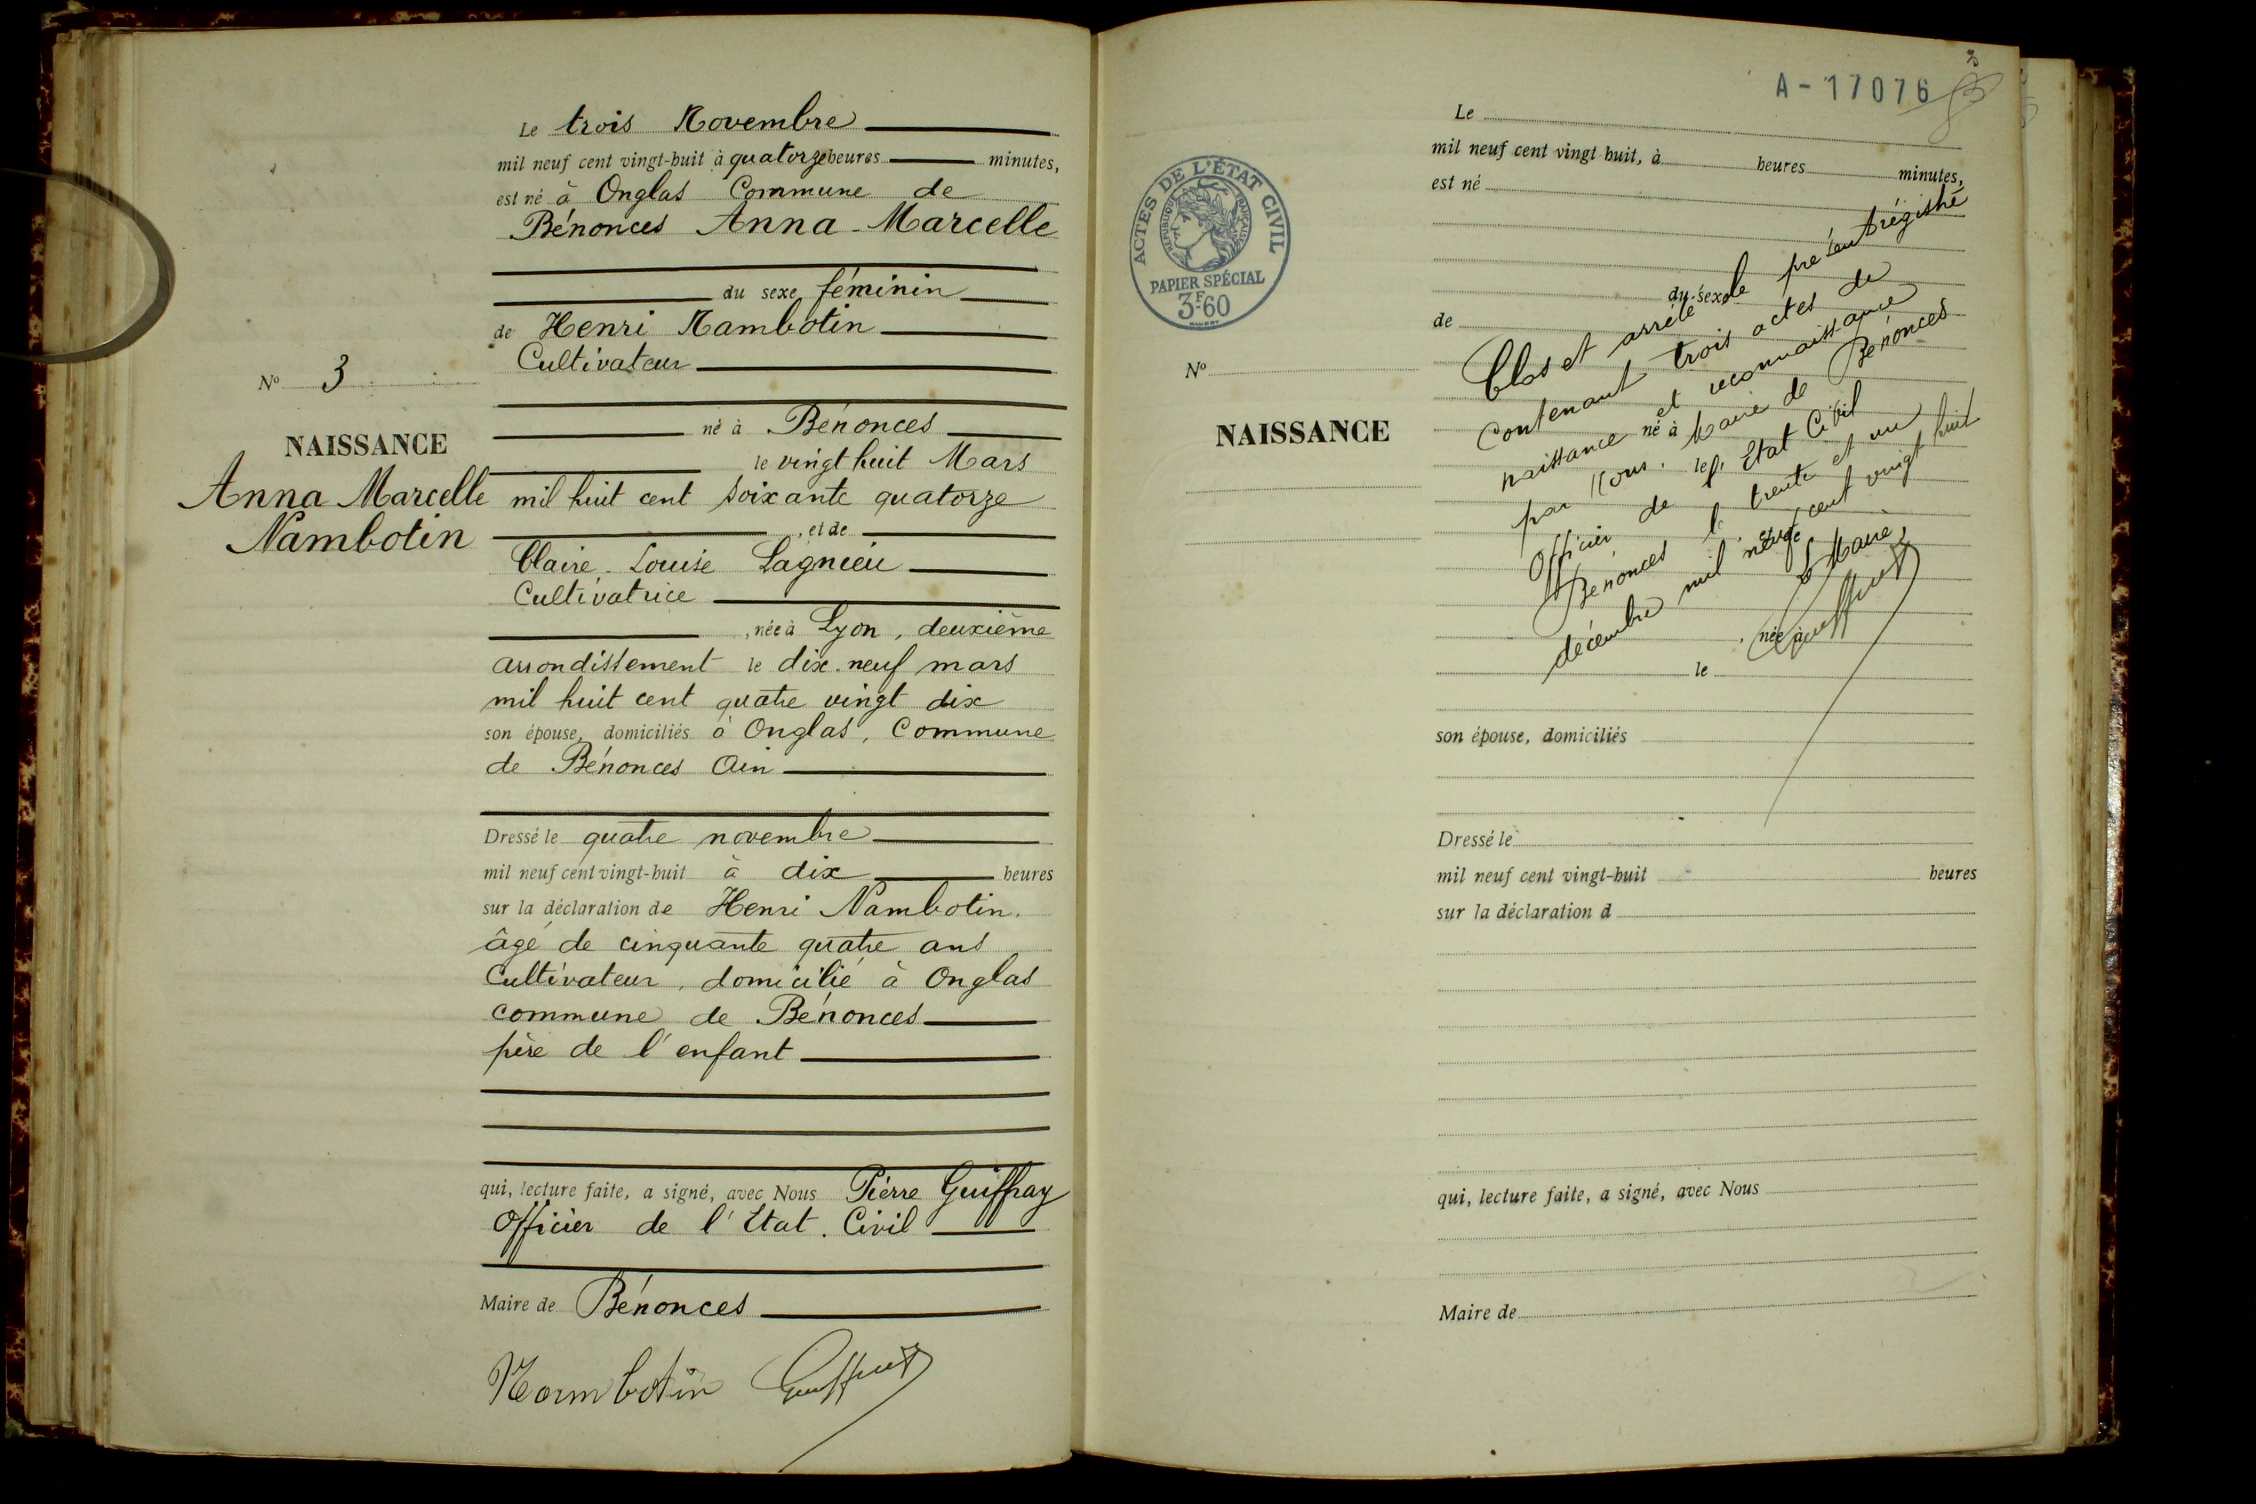 Le trois Novembre
mil neuf cent vingt-huit à quatorze heures minutes,
est né à Onglas Commune de
Bénonces Anna-Marcelle
du sexe féminin
de Henri Nambotin
Cultivateur
né à Bénonces
le vingt huit Mars
mil huit cent soixante quatorze
, et de
Claire-Louise Lagnieu
Cultivatrice
, née à Lyon, deuxième
arrondissement le dix-neuf mars
mil huit cent quatre vingt dix
son épouse, domiciliés à Onglas, Commune
de Bénonces Ain
Dressé le quatre novembre
mil neuf cent vingt-huit à dix heures
sur la déclaration de Henri Nambotin.
âgé de cinquante quatre ans
Cultivateur, domicilié à Onglas
commune de Bénonces
père de l'enfant
qui, lecture faite, a signé, avec Nous Pierre Guiffray
Officier de l'Etat. Civil
Maire de Bénonces
Nambotin
No 3
NAISSANCE
Anna Marcelle
Nambotin
3
A-17076
ACTES DE L'ÉTAT CIVIL
RÉPUBLIQUE FRANÇAISE
PAPIER SPÉCIAL
3F.60
No
NAISSANCE
Le
mil neuf cent vingt huit, à heures minutes,
est né
du sexe
de
né à
le
et de
, née à
le
son épouse, domiciliés
Dressé le
mil neuf cent vingt-huit heures
sur la déclaration d
qui, lecture faite, a signé, avec Nous
Maire de
Clos et arrêté le présent régistre
contenant trois actes de
naissance et reconnaissance
par Nous. Maire de Bénonces
Officier de l'Etat Civil
Bénonces le trente et un
décembre mil neuf cent vingt huit
Le Maire,